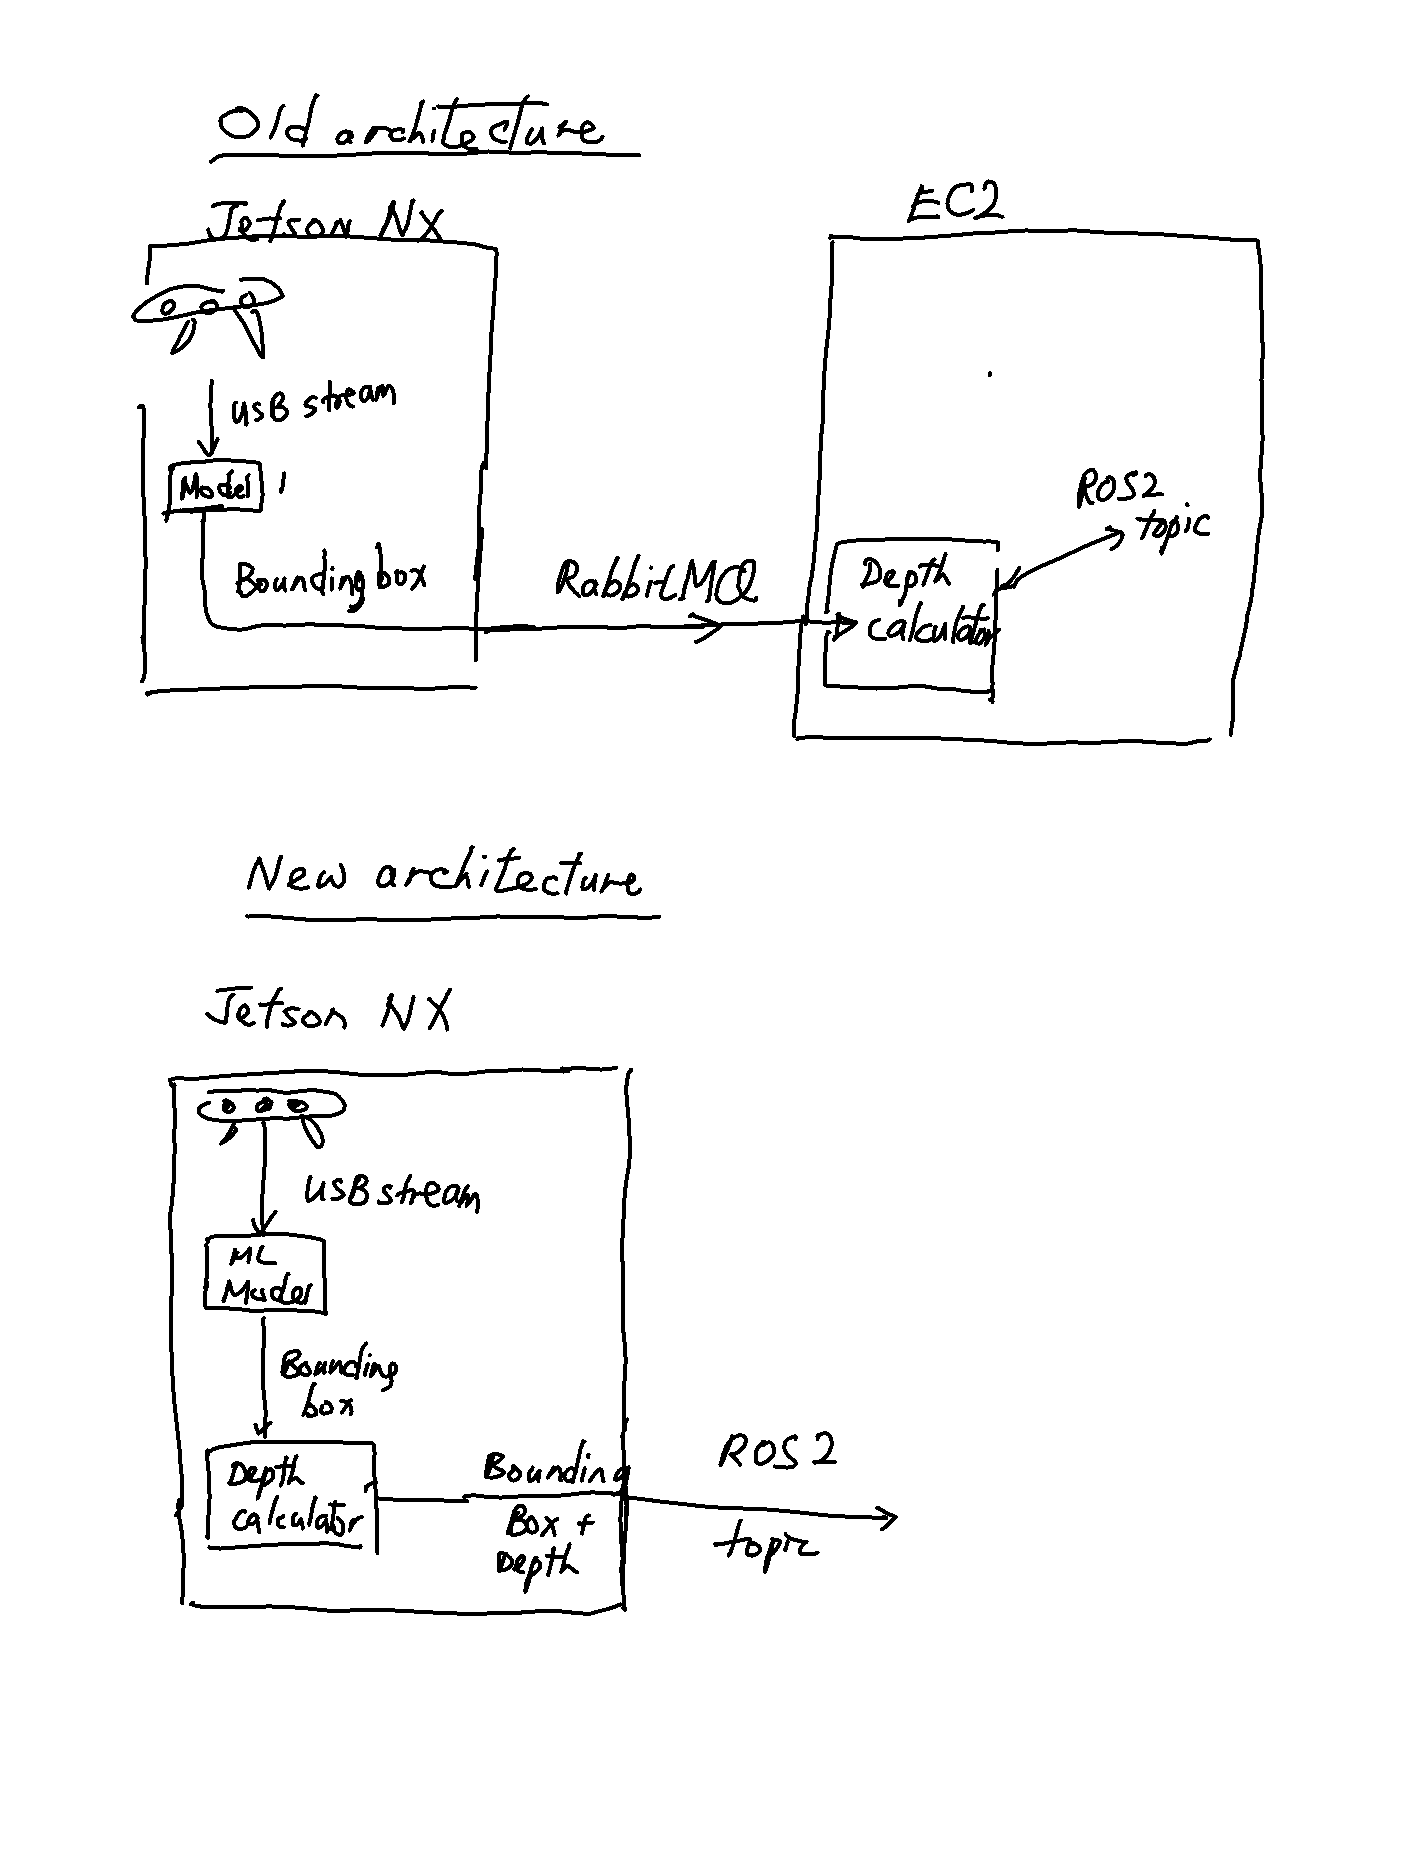 Old architecture
Jetson NX
EC2
USB stream
Model
ROS2
topic
Bounding box
RabbitMQ
Depth
calculator
New architecture
Jetson NX
USB stream
ML
Model
Bounding
box
Depth
calculator
Bounding
Box +
Depth
ROS2
topic